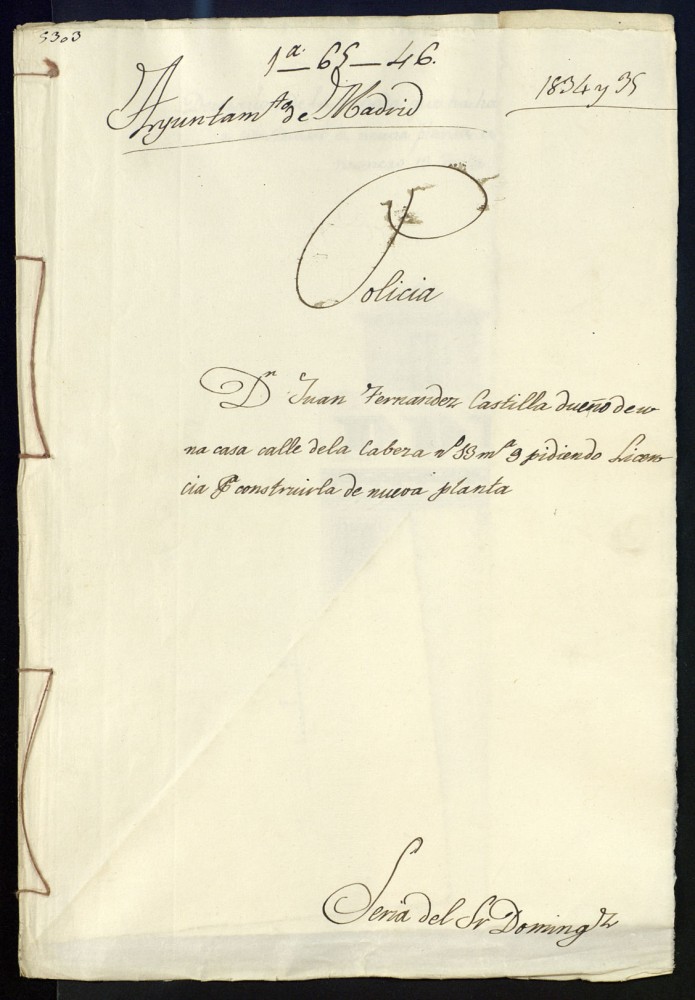 5303
1ª–65–46.
1834 y 35
Ayuntamto de Madrid
Policia
Dn Juan Fernandez Castilla dueño de u
na casa calle dela Cabeza nº 13 mª 9 pidiendo Licen
cia pª construirla de nueva planta
Seria del Sr Domingz